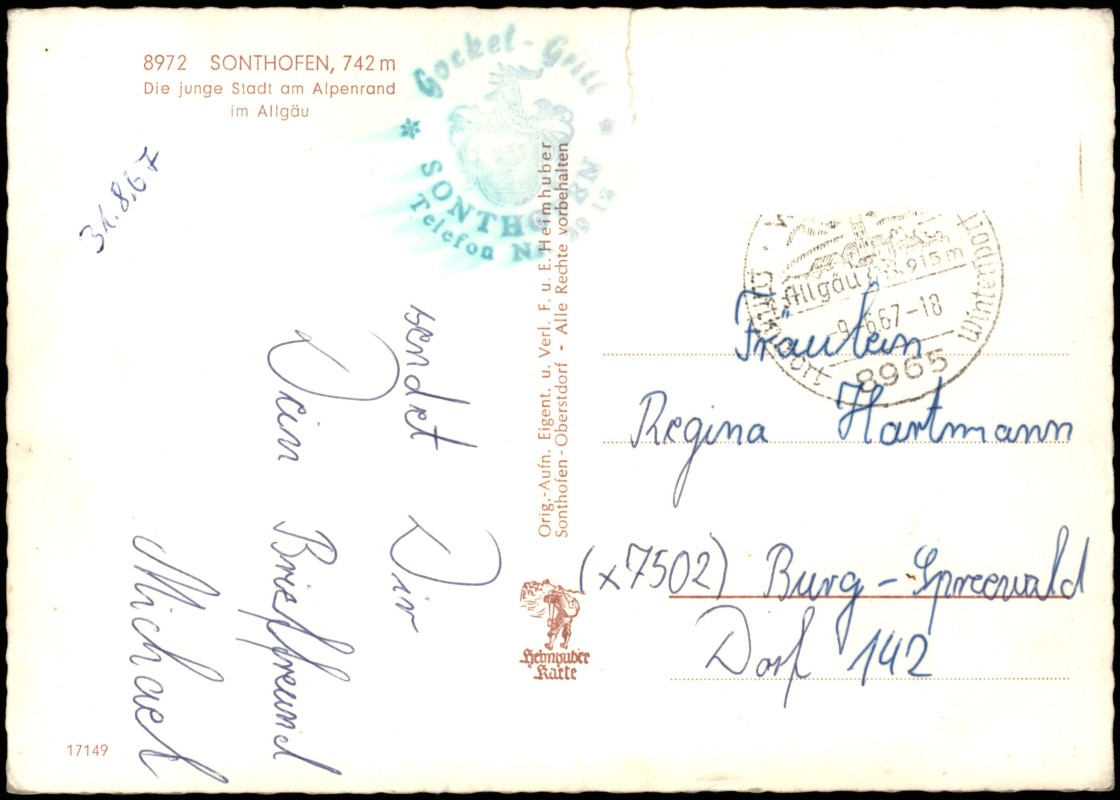 8972 SONTHOFEN, 742 m
Die junge Stadt am Alpenrand
im Allgäu
31.8.67
sendet Dir
Dein Brieffreund
Michael
17149
Gockel-Grill
SONTHOFEN
Telefon Nr. 2913
Orig.-Aufn. Eigent. u. Verl. F. u. E. Heimhuber
Sonthofen-Oberstdorf - Alle Rechte vorbehalten
Heimhuber
Karte
Allgäu 915 m
-9.-6.67-18
Wintersport
8965
Fräulein
Regina Hartmann
(x7502) Burg-Spreewald
Dorf 142